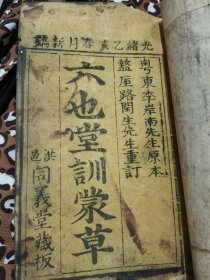 光緒乙亥春月新鐫
粤東李岸南先生原本
盩厔路閏生先生重訂
六也堂訓蒙草
洪邑同義堂藏板